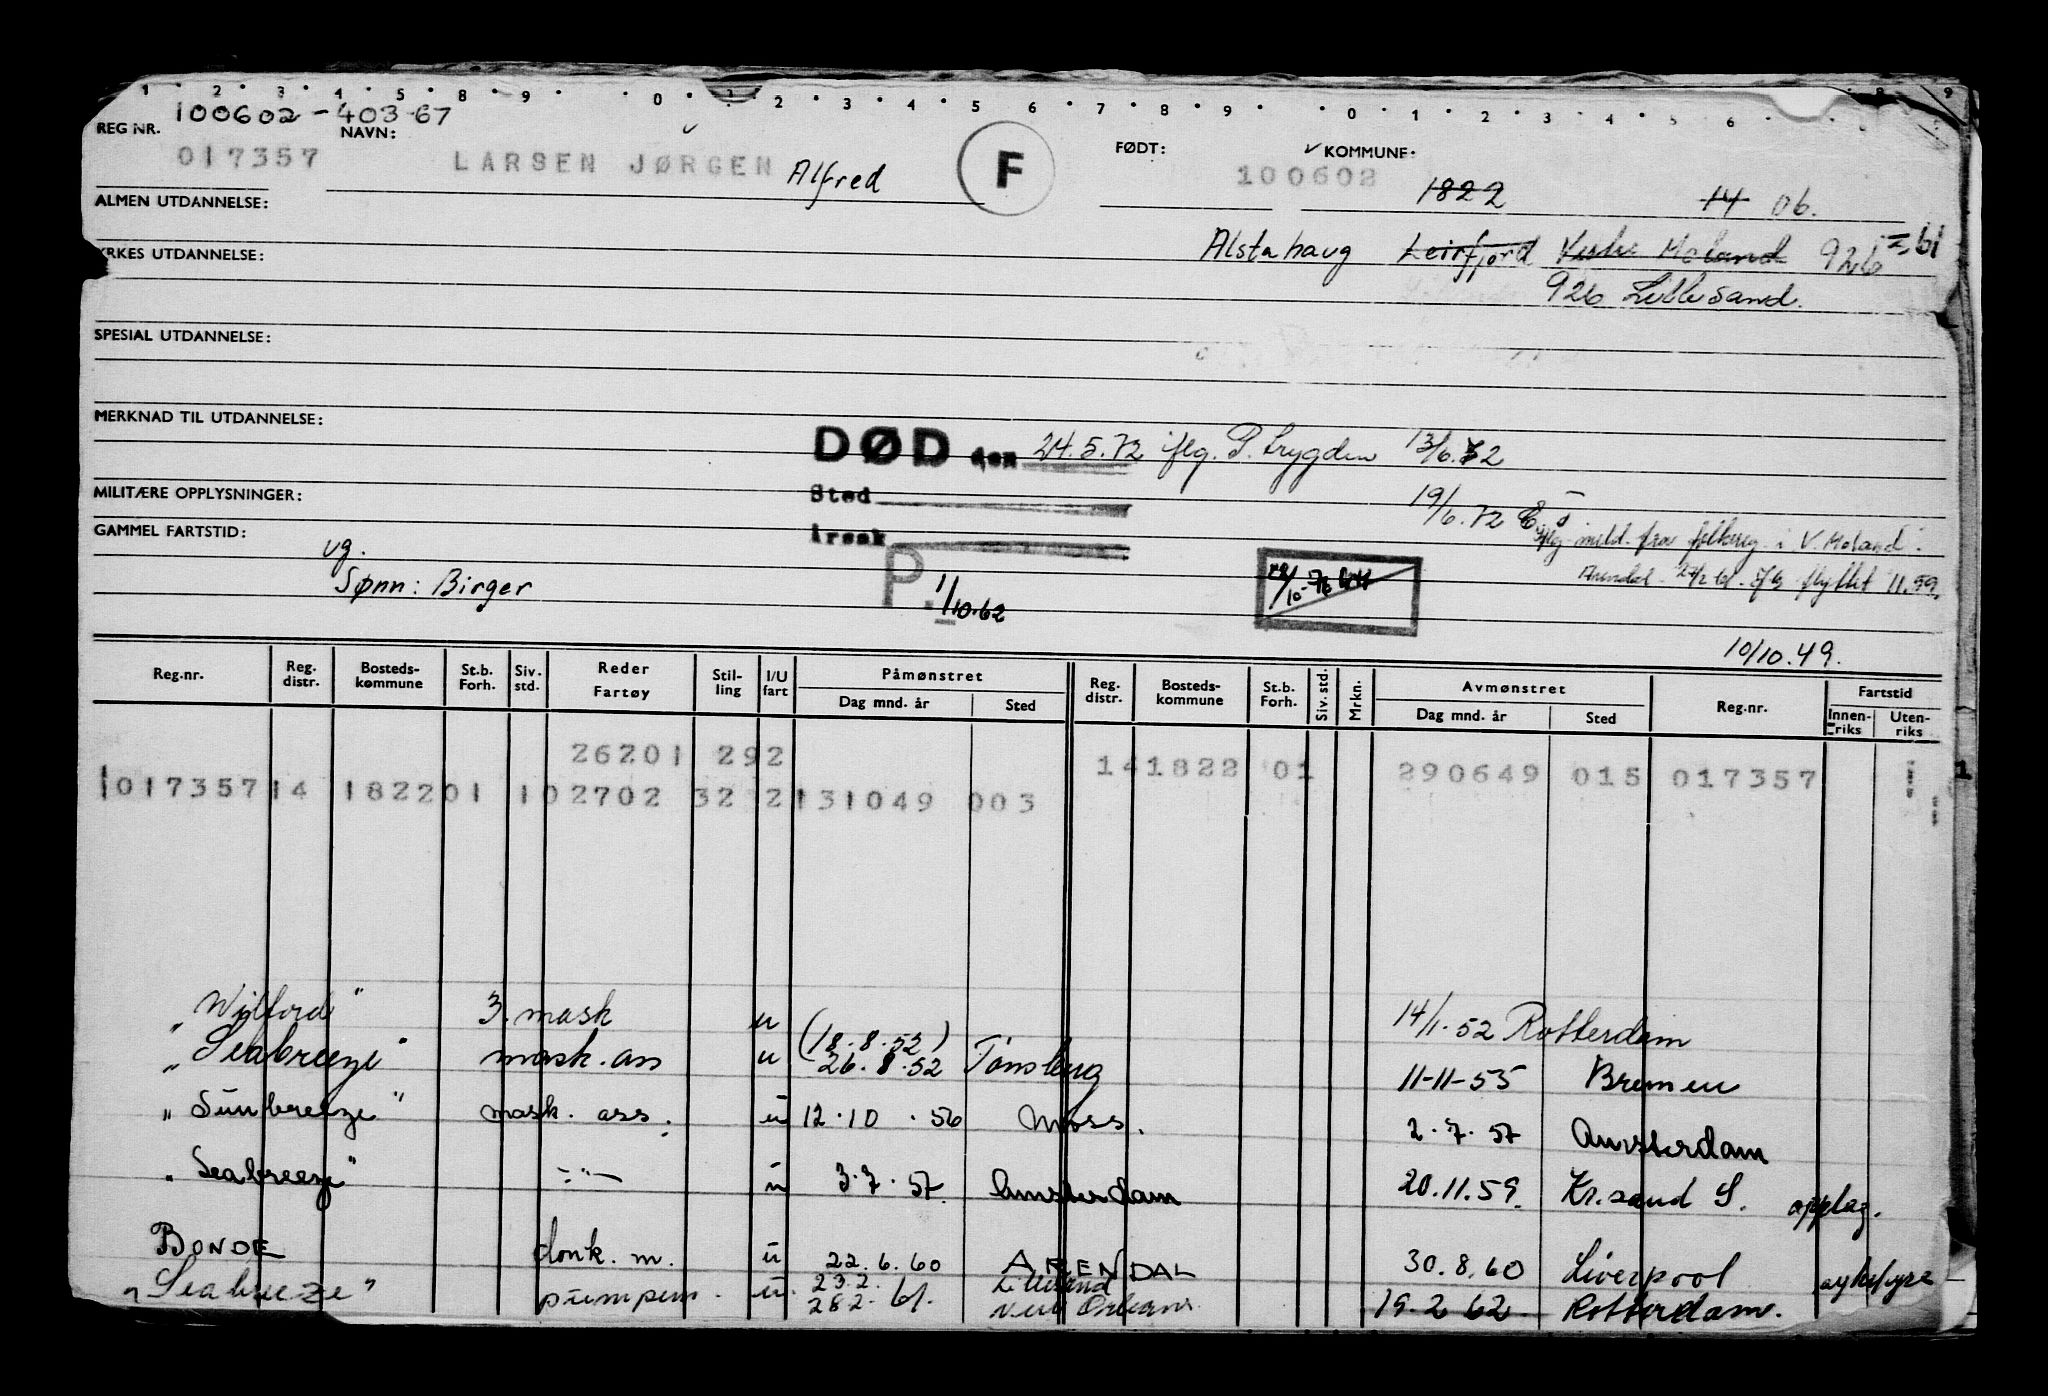 1 2 3 4 5 8 9 0 1 2 3 4 5 6 7 8 9 0 1 2 3 4 5 6 8 9
100602-403-67
REG NR. NAVN: FØDT: KOMMUNE:
017357 LARSEN JØRGEN Alfred F 100602 1822 14 06.
ALMEN UTDANNELSE:
Alstahaug Leirfjord Vestre Moland 926 = 61
YRKES UTDANNELSE:
926 Lillesand.
SPESIAL UTDANNELSE:
MERKNAD TIL UTDANNELSE:
DØD den 24.5.72 iflg. P. trygden 13/6.72
MILITÆRE OPPLYSNINGER: Sted
19/6.72
GAMMEL FARTSTID: Årsak
iflg. meld. fra folkereg. i V. Moland.
vg.
Arendal flyttet 11.59.
Sønn: Birger
P. 1/10.62
10/10.49.
Reg.nr. Reg. distr. Bosteds-kommune St.b. Forh. Siv. std. Reder Fartøy Stil-ling I/U fart Påmønstret Reg. distr. Bosteds-kommune St.b. Forh. Siv. std. Mrkn. Avmønstret Reg.nr. Fartstid
Dag mnd. år Sted Dag mnd. år Sted Innen-riks Uten-riks
26201 292 141822 01 290649 015 017357
1017357 14 182201 102702 32 2 131049 003
"Wilford" 3. mask u 14/1.52 Rotterdam
"Seabreeze" mask. ass u (18.8.52) 26.8.52 Tønsberg 11-11-55 Bremen
"Sunbreeze" mask. ass. u 12.10.56 Moss. 2.7.57 Amsterdam
"Seabreeze" -"- u 3.7.57. Amsterdam 20.11.59. Kr.sand S. opplag.
BONDE donk. m. u 22.6.60 ARENDAL 30.8.60 Liverpool sykefyre
"Seabreeze" pumpem. u. 23.2. 28.2.61. Lillesand New Orleans 19.2 62. Rotterdam.